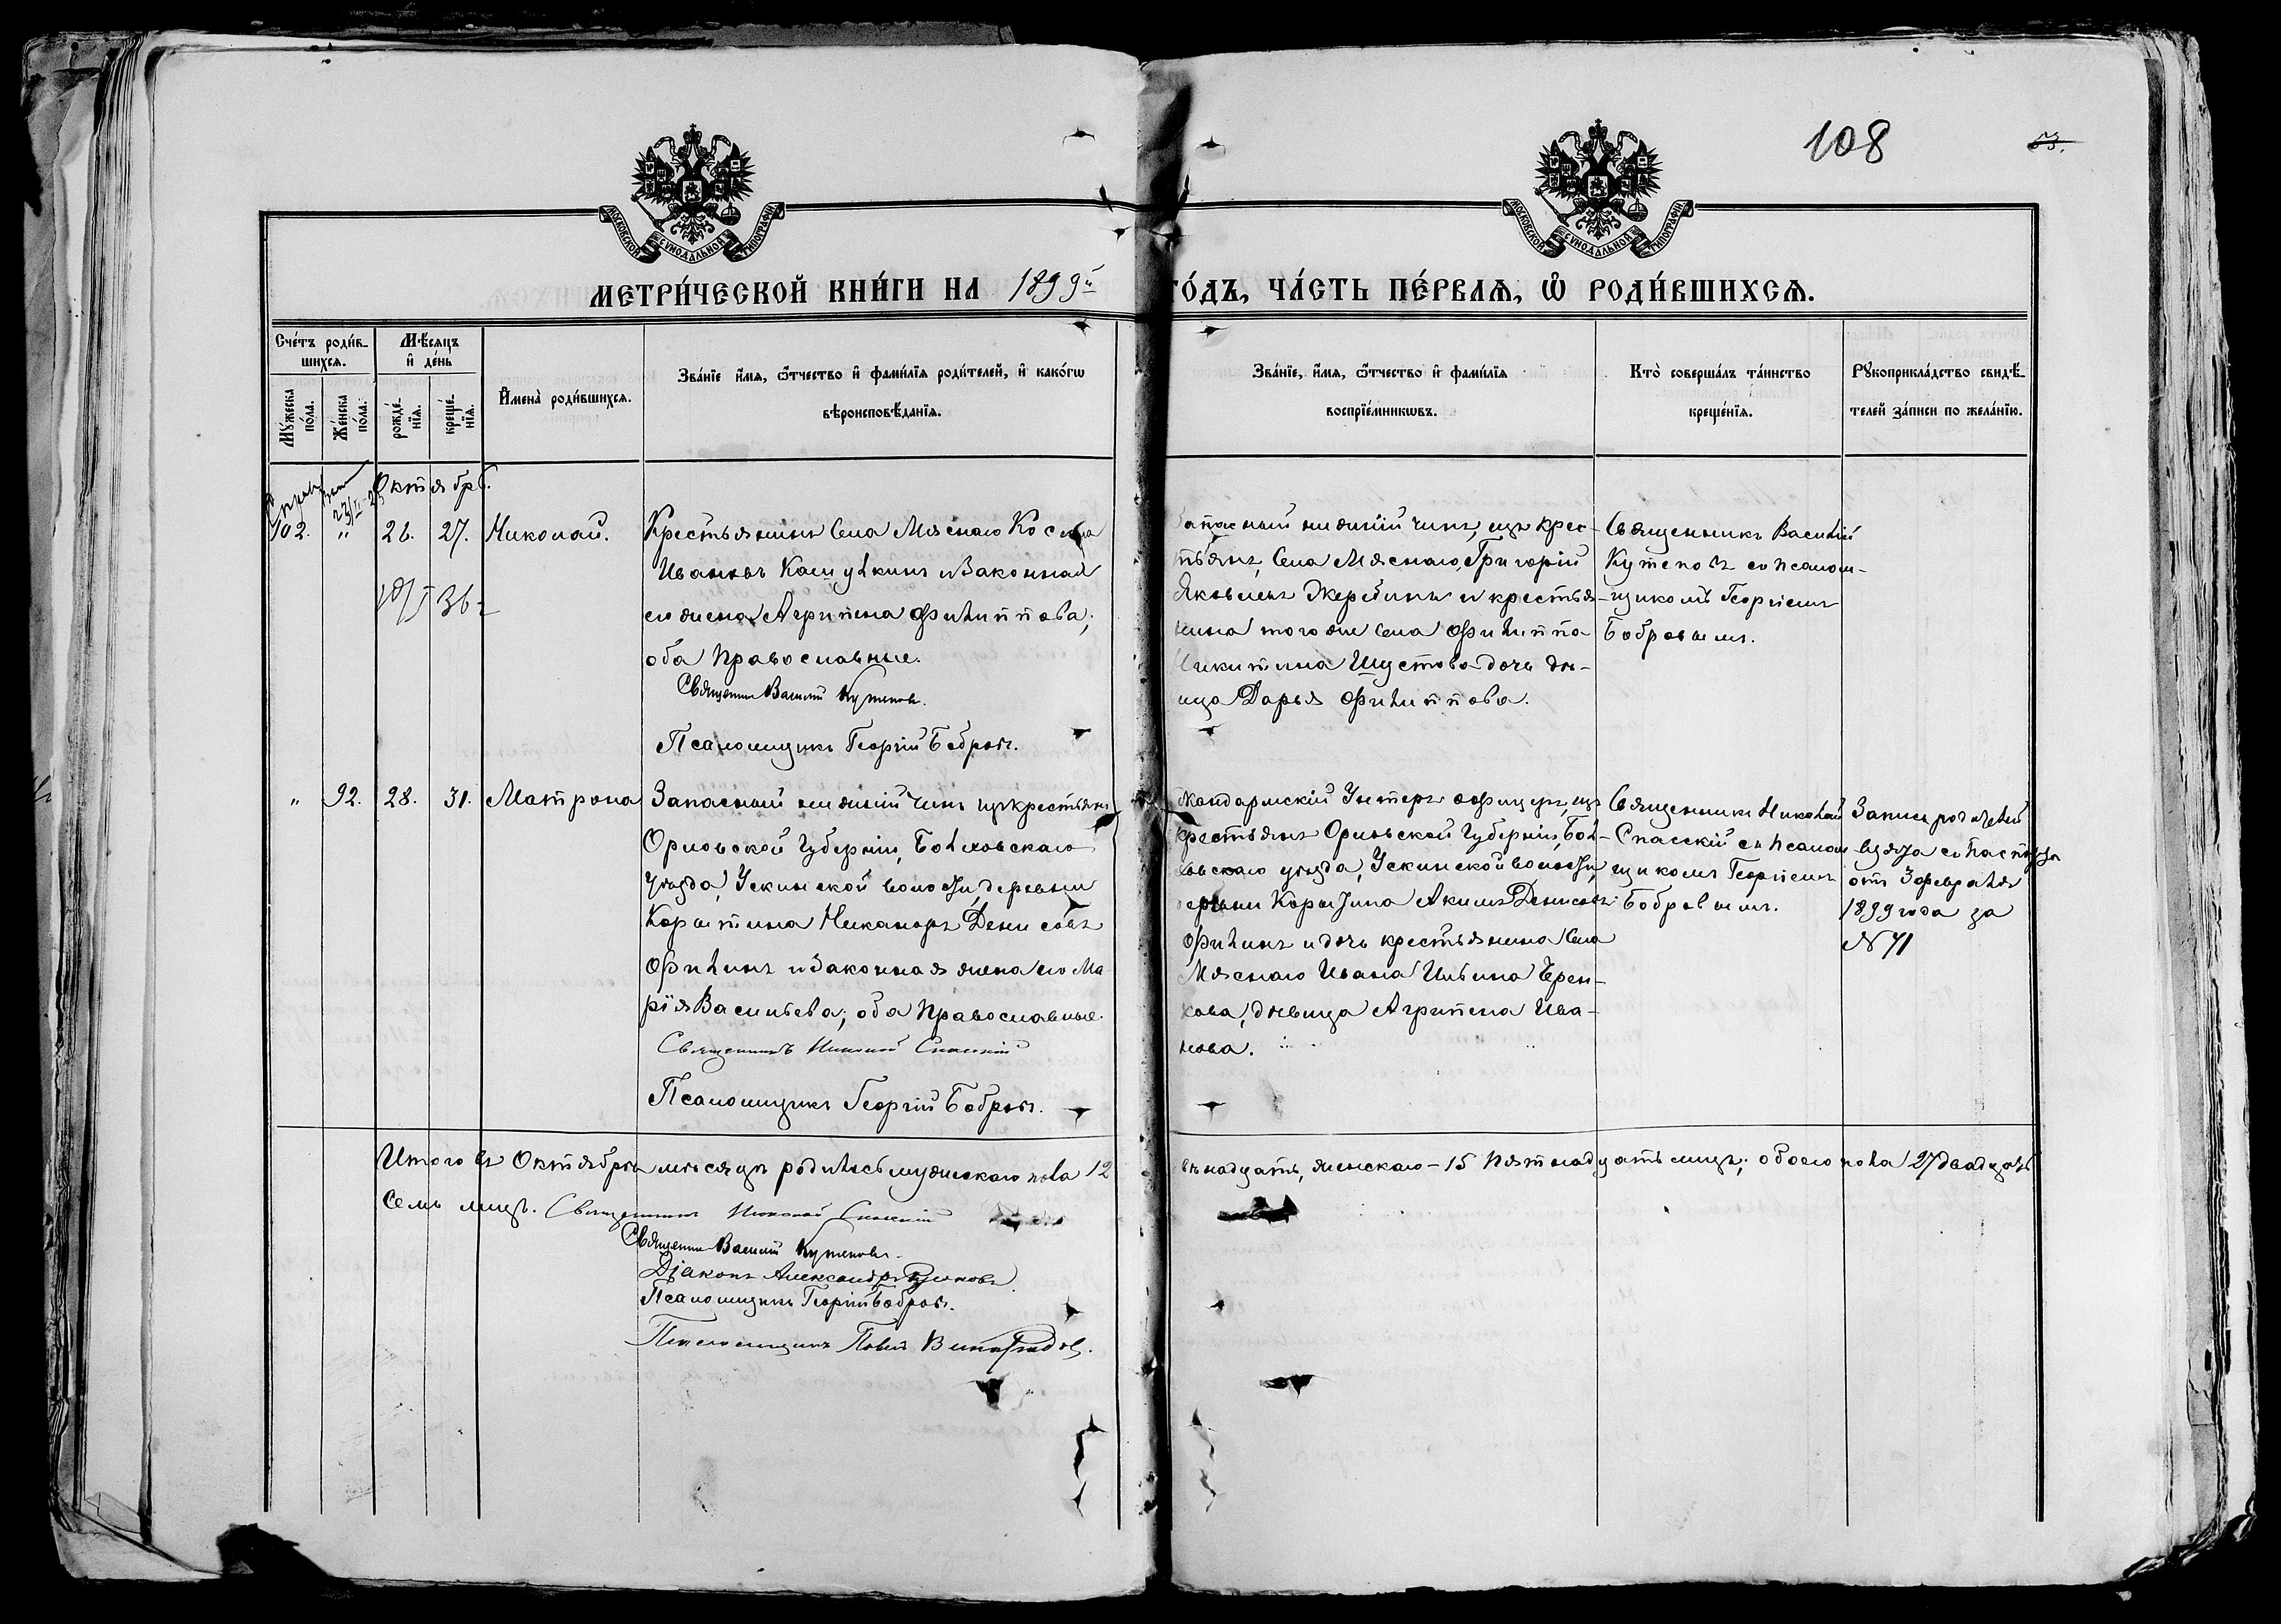 108
53.
МОСКОВСКОЙ СѴНОДАЛЬНОЙ ТИПОГРАФІИ
МОСКОВСКОЙ СѴНОДАЛЬНОЙ ТИПОГРАФІИ
МЕТРИ́ЧЕСКОЙ КНИ́ГИ НА 1899й
ГО́ДЪ, ЧА́СТЬ ПЕ́РВАѦ, Ѡ҆ РОДИ́ВШИХСѦ.
Сче́тъ роди́в-
шихсѧ.
Мѣ́сѧцъ
и҆ де́нь
Мꙋ́жеска
по́ла.
Же́нска
по́ла.
рожде́-
нїѧ.
креще́-
нїѧ.
И҆мена̀ роди́вшихсѧ.
Зва́нїе и҆́мѧ, ѻ҆́тчество и҆ фами́лїѧ роди́телей, и҆ како́гѡ
вѣроисповѣ́данїѧ.
Зва́нїе, и҆́мѧ, ѻ҆́тчество и҆ фами́лїѧ
воспрїе́мникѡвъ.
Кто̀ соверша́лъ та́инство
креще́нїѧ.
Рꙋкоприкла́дство свидѣ́-
телей за́писи по жела́нїю.
Октябрь.
102. " 26. 27. Николай.
Крестьянинъ Села Мяснаго Косма
Ивановъ Кашуткинъ и Законная
его жена Агрипена Филиппова;
оба Православные.
Священникъ Василій Кутеповъ.
Псаломщикъ Георгій Бобровъ.
Запасный нижній чинъ, изъ крес-
тьянъ, Села Мяснаго, Григорій
Яковлевъ и крестья-
нина того же Села Филиппа
Никитина Шустова дочь дѣ-
вица Дарья Филиппова.
Священникъ Василій
Кутеповъ съ псалом-
щикомъ Георгіемъ
Бобровымъ.
" 92. 28. 31. Матрона
Запасный нижній чинъ изъ крестьянъ
Орловской Губерніи, Болховскаго
уѣзда, Ускинской волости, деревни
Корытина Никаноръ Денисовъ
Филинъ и Законная жена его Ма-
рія Васильева; оба Православные.
Священникъ Николай Спасскій
Псаломщикъ Георгій Бобровъ.
Жандармскій Унтеръ офицеръ, изъ
крестьянъ Орловской Губерніи, Бол-
ховскаго уѣзда, Ускинской волости,
деревни Корытина Акимъ Денисовъ
Филинъ и дочь крестьянина Села
Мяснаго Ивана Ильина
дѣвица Агрипена Ива-
нова.
Священникъ Николай
Спасскій съ псалом-
щикомъ Георгіемъ
Бобровымъ.
Запись родителей
взята съ паспорта
отъ 3 февраля
1899 года за
№ 71
Итого въ Октябрѣ мѣсяцѣ родилось мужескаго пола 12
двѣнадцать, женскаго – 15 пятнадцать лицъ; обоего пола 27 двадцать
семь лицъ. Священникъ Николай Спасскій
Священникъ Василій Кутеповъ.
Діаконъ Александръ
Псаломщикъ Георгій Бобровъ.
Псаломщикъ Павелъ Виноградовъ.